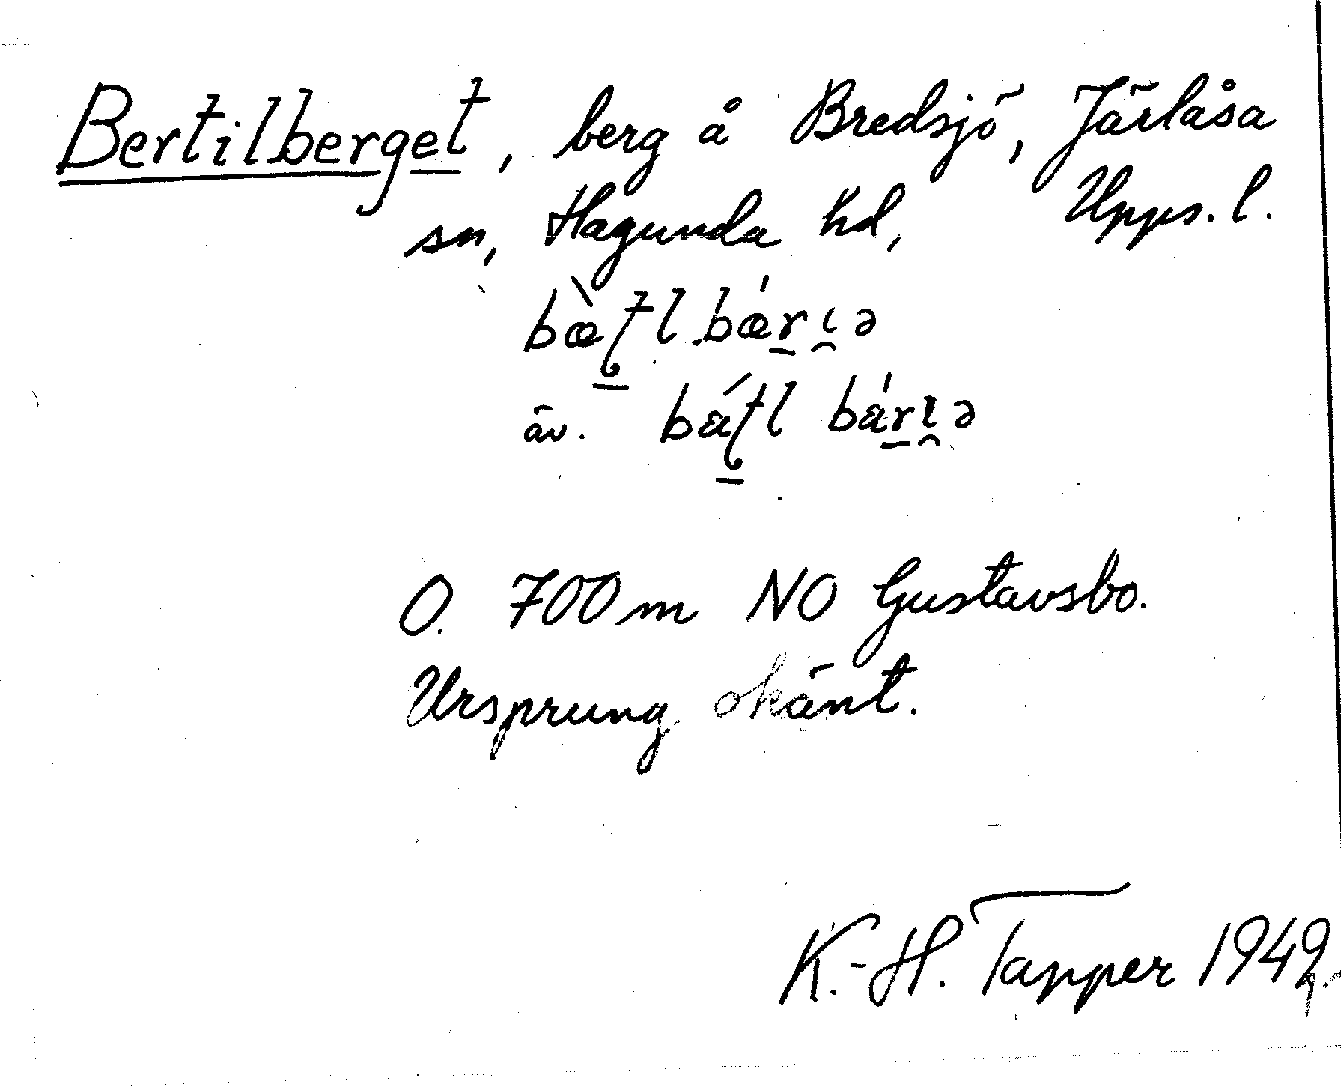 Bertilberget, berg å Bredsjö, Järlåsa
sn, Hagunda hd, Upps. l.
bæ̀ʈl bǽrɩə
äv. bǽʈl bǽrɩə
O. 700 m NO Gustavsbo.
Ursprung okänt.
K.-H. Tapper 1942.